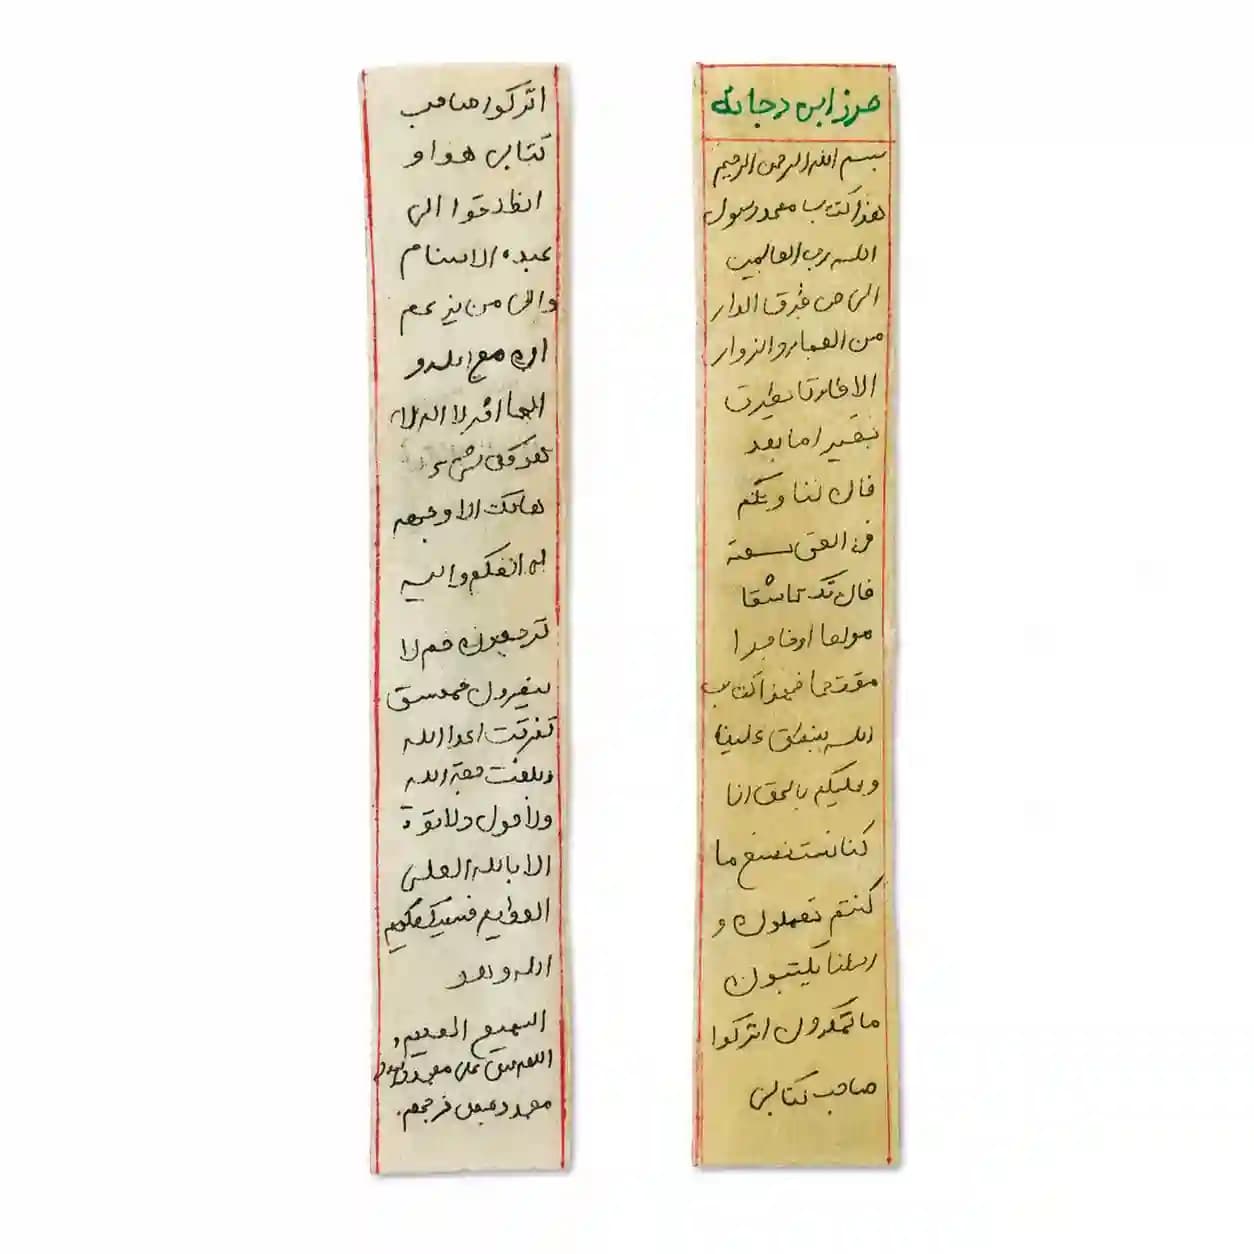 حرز ابی دجانه
بسم الله الرحمن الرحیم
هذا کتاب محمد رسول
الله رب العالمین
الی من طرق الدار
من العمار و الزوار
الا طارقا یطرق
بخیر اما بعد
فان لنا و لکم
فی الحق سعة
فان تک عاشقا
مولعا او فاجرا
مقتحما فهذا کتاب
الله ینطق علینا
و علیکم بالحق انا
کنا نستنسخ ما
کنتم تعملون و
رسلنا یکتبون
ما تمکرون اترکوا
صاحب کتابی
اترکوا صاحب
کتابی هذا و
انطلقوا الی
عبدة الاصنام
و الی من یزعم
ان مع الله
الها اخر لا اله الا
هو کل شیء
هالک الا وجهه
له الحکم و الیه
ترجعون حم لا
ینصرون حمعسق
تفرقت اعداء الله
و بلغت حجة الله
ولا حول ولا قوة
الا بالله العلی
العظیم فسیکفیکهم
الله و هو
السمیع العلیم
اللهم صل علی محمد و آل
محمد و عجل فرجهم.